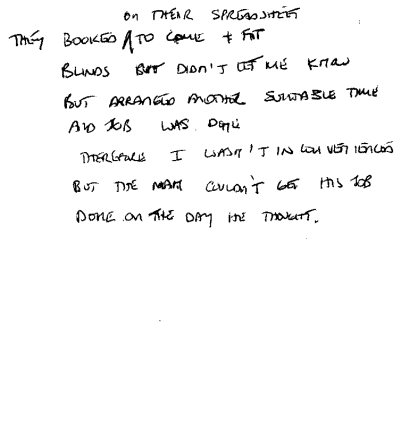 ON THEIR SPREADSHEET
THEY BOOKED TO COME + FIT
BLINDS BUT DIDN'T LET ME KNOW
BUT ARRANGED ANOTHER SUITABLE TIME
AND JOB WAS DONE
THEREFORE I WASN'T INCONVENIENCED
BUT THE MAN COULDN'T GET HIS JOB
DONE ON THE DAY HE THOUGHT.